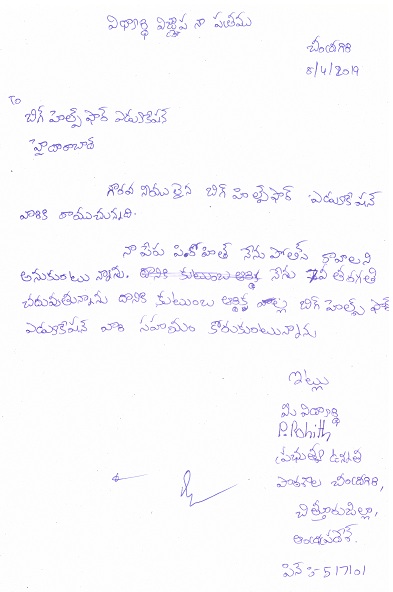 విద్యార్థి విజ్ఞప్తి నా పత్రము
చంద్రగిరి
5/4/2019
To
బిగ్ హెల్ప్ ఫార్ ఎడ్యుకేషన్
హైదరాబాద్
గౌరవ నీయులైన బిగ్ హెల్ప్ ఫార్ ఎడ్యుకేషన్
వారికి రాయుచున్నది.
నా పేరు పి.రోహిత్ నేను పోలీస్ కావాలని
అనుకుంటున్నాను. నేను 7వ తరగతి
చదువుతున్నాను దానికి కుటుంబ ఆర్థిక వల్ల బిగ్ హెల్ప్ ఫార్
ఎడ్యుకేషన్ వారి సహాయం కోరుకుంటున్నాను
ఇట్లు
మీ విద్యార్థి
P.Rohith
ప్రభుత్వ ఉన్నత
పాఠశాల చంద్రగిరి,
చిత్తూరుజిల్లా,
ఆంధ్రప్రదేశ్.
పిన్ :- 517101